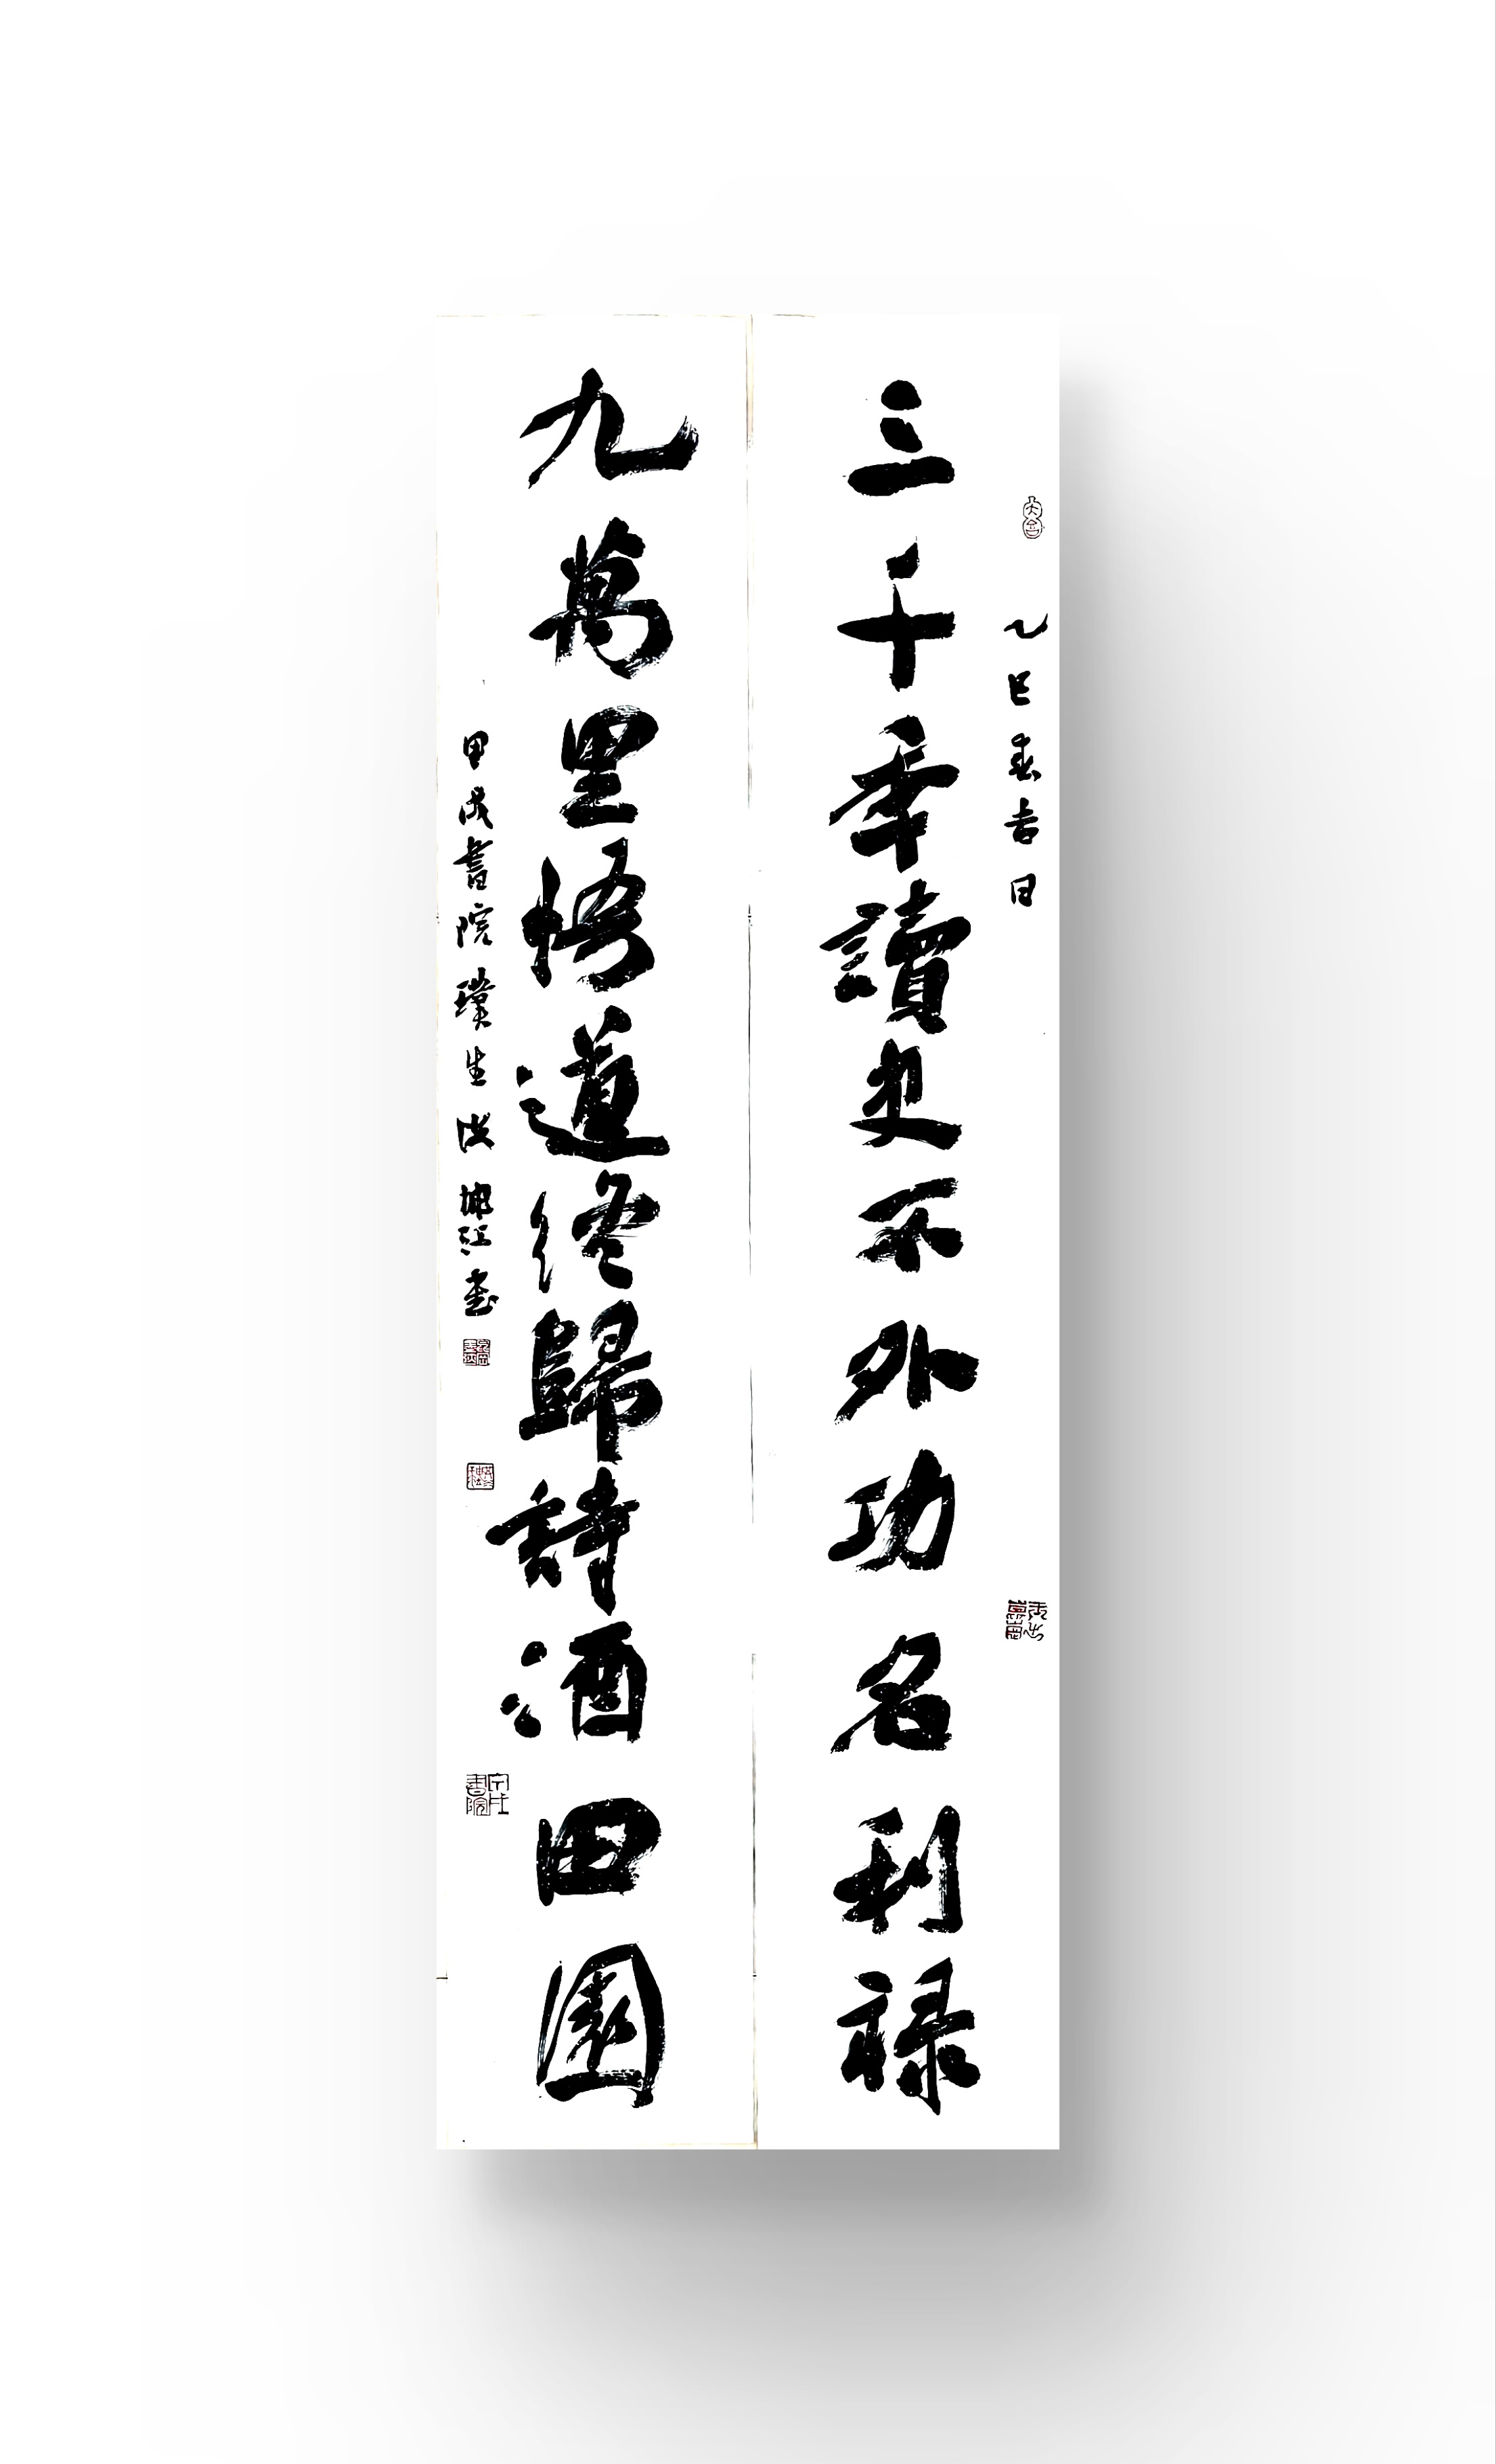 乙巳春吉日
三千年讀史不外功名利祿
九萬里悟道終歸詩酒田園
甲戌書院璞生洪坤江書